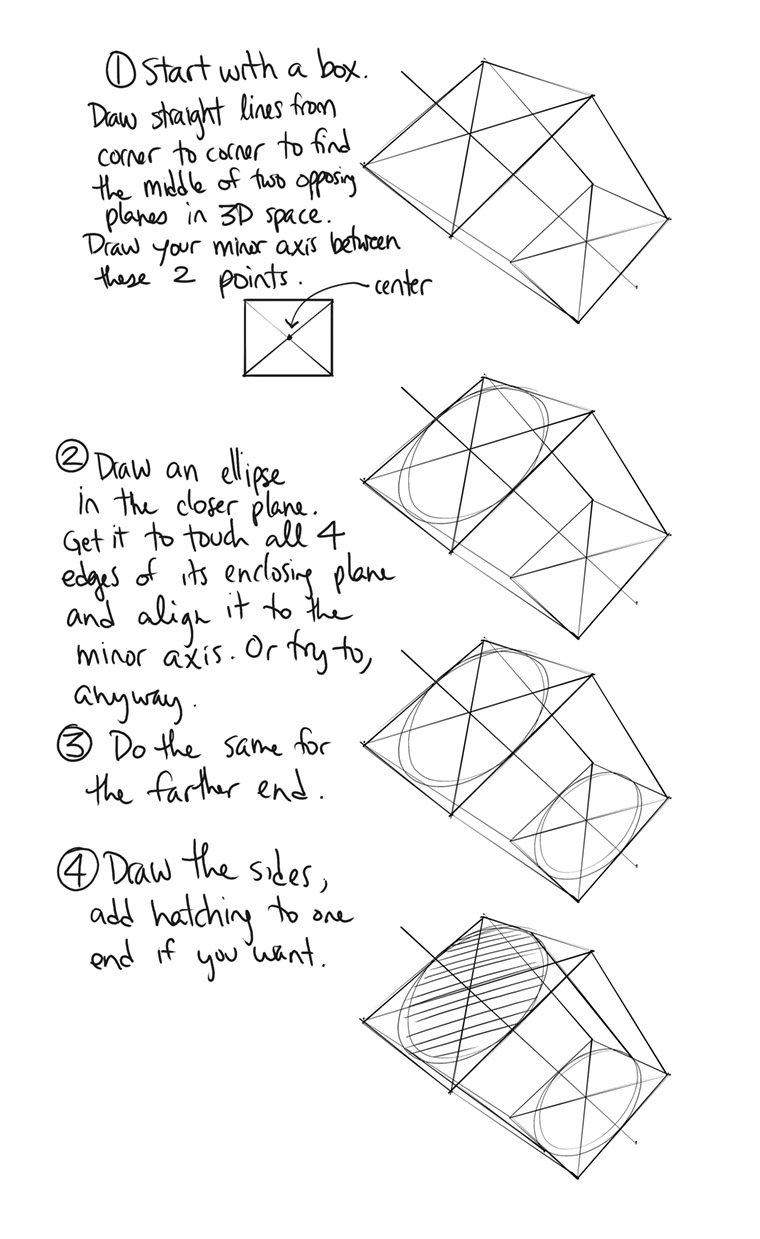 ① Start with a box.
Draw straight lines from
corner to corner to find
the middle of two opposing
planes in 3D space.
Draw your minor axis between
these 2 points.
center
② Draw an ellipse
in the closer plane.
Get it to touch all 4
edges of its enclosing plane
and align it to the
minor axis. Or try to,
anyway.
③ Do the same for
the farther end.
④ Draw the sides,
add hatching to one
end if you want.